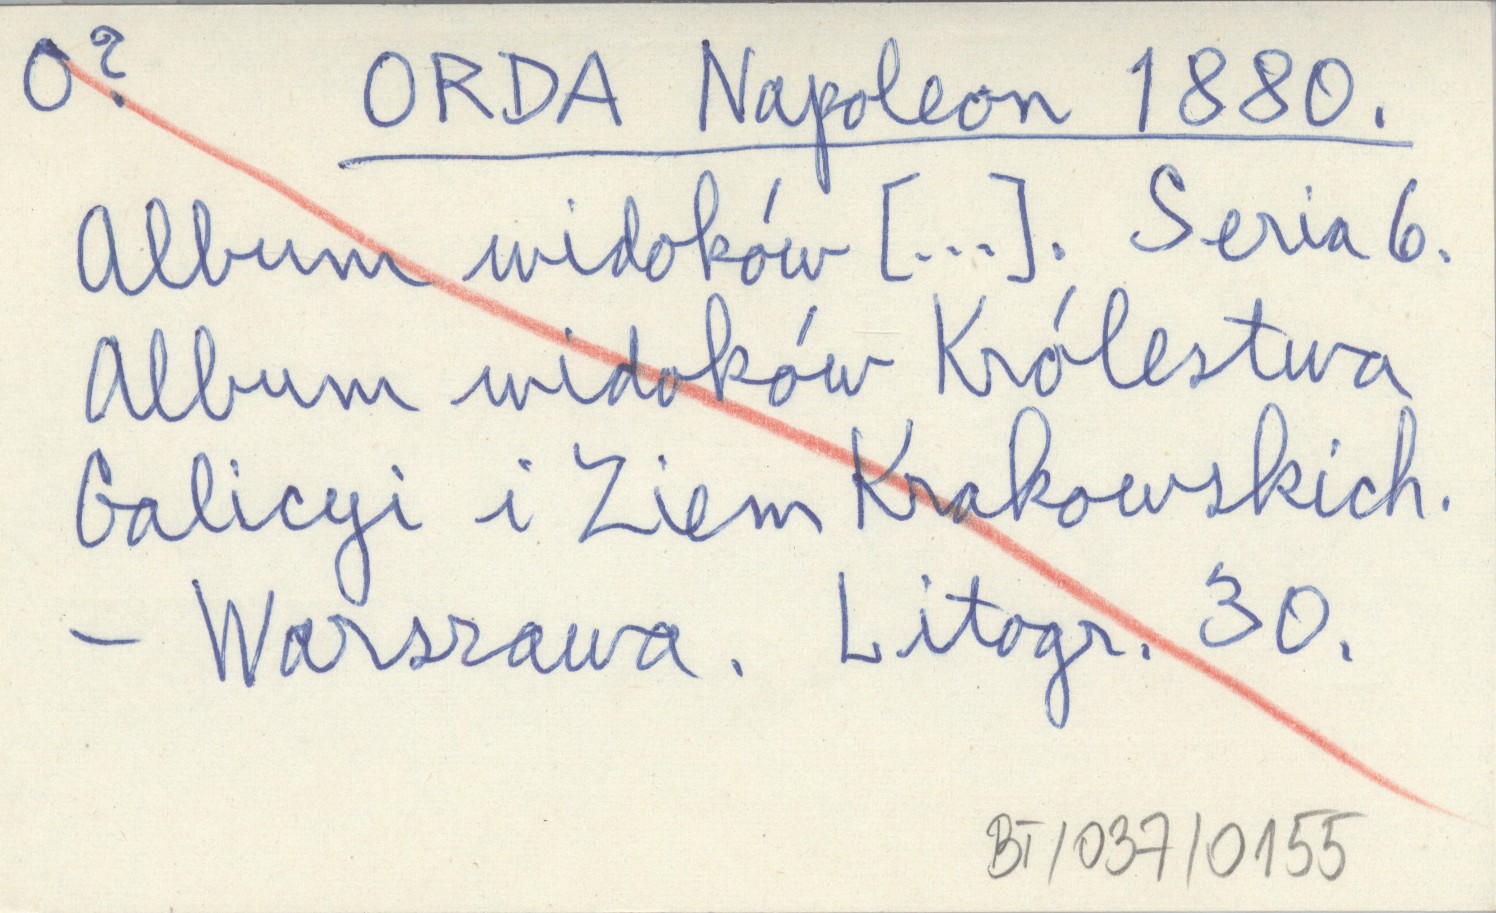 O? ORDA Napoleon 1880.
Album widoków [...]. Seria 6.
Album widoków Królestwa
Galicyi i Ziem Krakowskich.
– Warszawa. Litogr. 30.
BT/037/0155